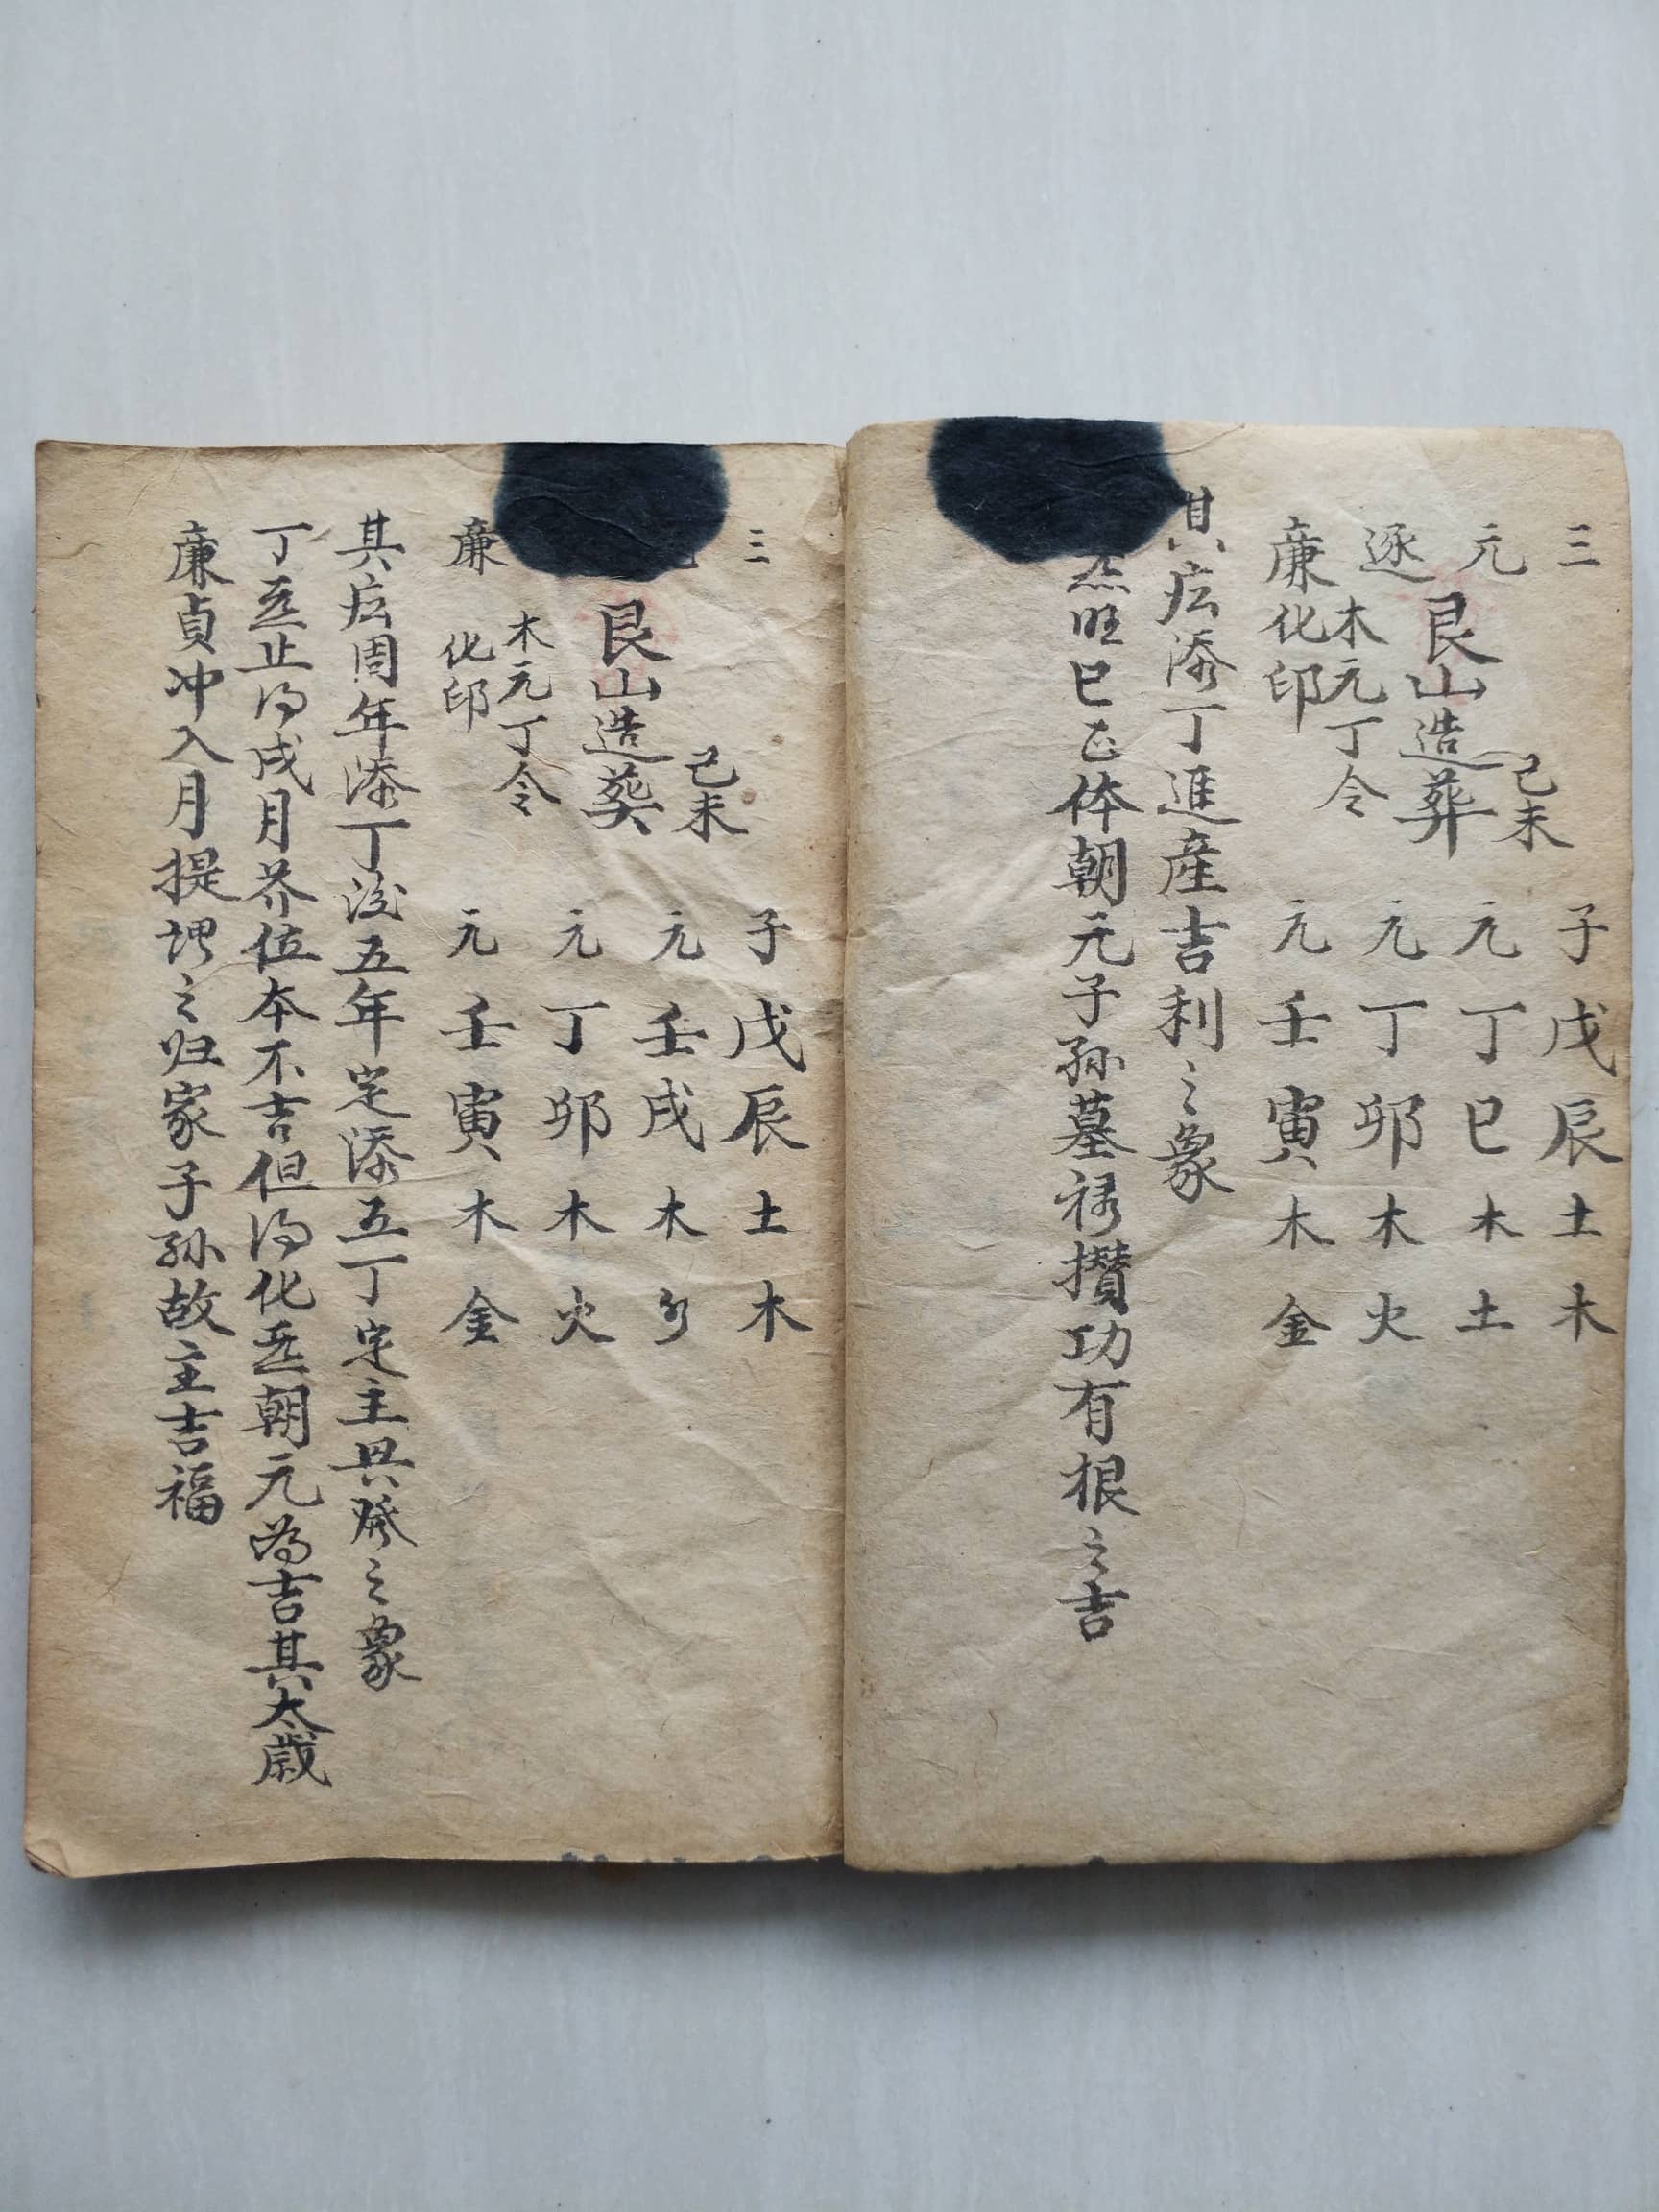 三 己未 子戊辰土木
元 艮山造葬 元丁巳木土
逐 木元丁令 元丁卯木火
廉 化印 元壬寅木金
其広添丁進産吉利之象
旺巳正体朝元子孫墓禄攅功有根之吉
三 己未 子戊辰土木
艮山造葵 元壬戌木
木元丁令 元丁卯木火
廉 化印 元壬寅木金
其広周年添丁後五年定添五丁定主具発之象
丁 止得戌月 位本不吉但得化 朝元為吉其太歳
廉貞冲入月提 之归家子孫故主吉福